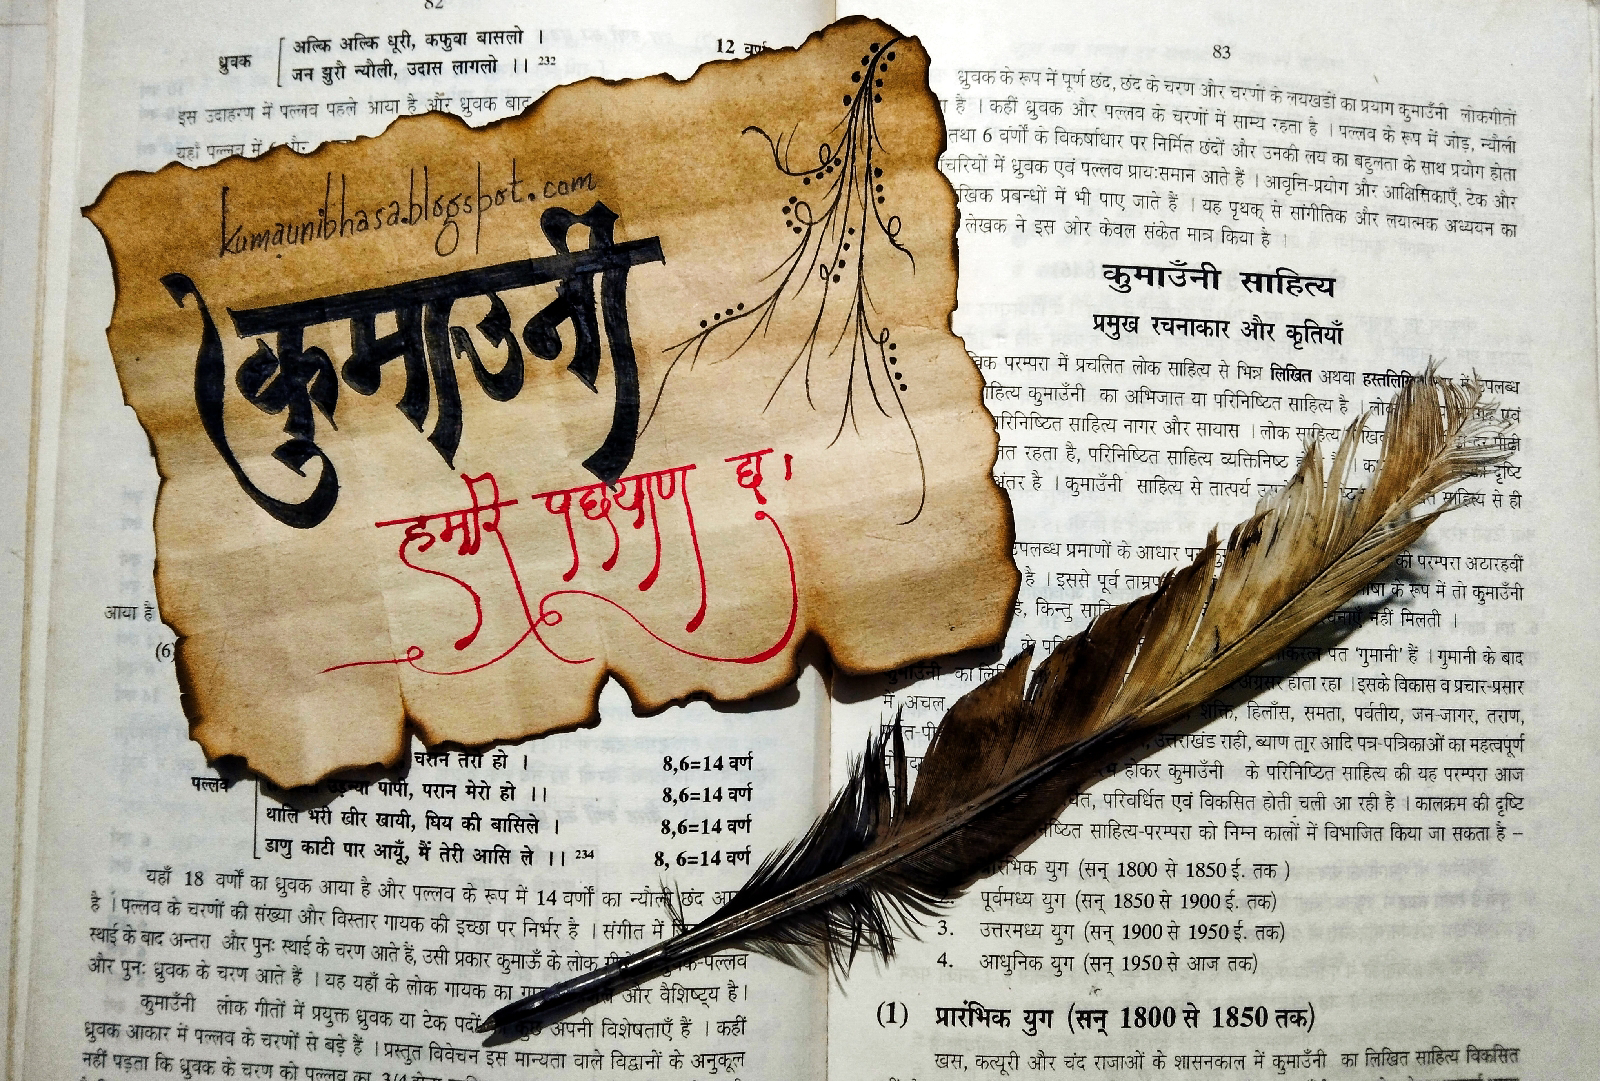 82
ध्रुवक
अल्कि अल्कि धूरी, कफुवा बासलो ।
जन झुरौ न्यौली, उदास लागलो ।। 232
12 वर्ण
इस उदाहरण में पल्लव पहले आया है और ध्रुवक बाद
यहाँ पल्लव में 6 और
kumaunibhasa.blogspot.com
कुमाउनी
हमरि पछ्याण छ्।
आया है
(6)
तेरो हो ।
8,6=14 वर्ण
पल्लव
पापी, परान मेरो हो ।।
8,6=14 वर्ण
थालि भरी खीर खायी, घिय की बासिले ।
8,6=14 वर्ण
डाणु काटी पार आयूँ, मैं तेरी आसि ले ।। 234
8, 6=14 वर्ण
यहाँ 18 वर्णों का ध्रुवक आया है और पल्लव के रूप में 14 वर्णों का न्यौली छंद
है । पल्लव के चरणों की संख्या और विस्तार गायक की इच्छा पर निर्भर है । संगीत में
स्थाई के बाद अन्तरा और पुनः स्थाई के चरण आते हैं, उसी प्रकार कुमाऊँ के लोक
और पुनः ध्रुवक के चरण आते हैं । यह यहाँ के लोक गायक का और वैशिष्ट्य है।
कुमाउँनी लोक गीतों में प्रयुक्त ध्रुवक या टेक पदों कुछ अपनी विशेषताएँ हैं । कहीं
ध्रुवक आकार में पल्लव के चरणों से बड़े हैं । प्रस्तुत विवेचन इस मान्यता वाले विद्वानों के अनुकूल
नहीं पड़ता कि ध्रुवक के चरण को पल्लव का 3/4
83
ध्रुवक के रूप में पूर्ण छंद, छंद के चरण और चरणों के लयखडों का प्रयाग कुमाउँनी लोकगीतों
है । कहीं ध्रुवक और पल्लव के चरणों में साम्य रहता है । पल्लव के रूप में जोड़, न्यौली
तथा 6 वर्णों के विकर्षाधार पर निर्मित छंदों और उनकी लय का बहुलता के साथ प्रयोग होता
में ध्रुवक एवं पल्लव प्रायःसमान आते हैं । आवृत्ति-प्रयोग और आक्षिसिकाएँ, टेक और
प्रबन्धों में भी पाए जाते हैं । यह पृथक् से सांगीतिक और लयात्मक अध्ययन का
लेखक ने इस ओर केवल संकेत मात्र किया है ।
कुमाउँनी साहित्य
प्रमुख रचनाकार और कृतियाँ
परम्परा में प्रचलित लोक साहित्य से भिन्न लिखित अथवा में उपलब्ध
कुमाउँनी का अभिजात या परिनिष्टित साहित्य है । एवं
परिनिष्टित साहित्य नागर और सायास । लोक साहित्य पीढ़ी
रहता है, परिनिष्टित साहित्य व्यक्तिनिष्ट दृष्टि
अंतर है । कुमाउँनी साहित्य से तात्पर्य साहित्य से ही
उपलब्ध प्रमाणों के आधार पर की परम्परा अटारहवीं
है । इससे पूर्व के रूप में तो कुमाउँनी
है, किन्तु नहीं मिलती ।
पंत 'गुमानी' हैं । गुमानी के बाद
कुमाउँनी का अग्रसर होता रहा । इसके विकास व प्रचार-प्रसार
में अचल, शक्ति, हिलाँस, समता, पर्वतीय, जन-जागर, तराण,
उत्तराखंड राही, ब्याण तार आदि पत्र-पत्रिकाओं का महत्वपूर्ण
होकर कुमाउँनी के परिनिष्टित साहित्य की यह परम्परा आज
परिवर्धित एवं विकसित होती चली आ रही है । कालक्रम की दृष्टि
साहित्य-परम्परा को निम्न कालों में विभाजित किया जा सकता है –
प्रारंभिक युग (सन् 1800 से 1850 ई. तक )
2. पूर्वमध्य युग (सन् 1850 से 1900 ई. तक)
3. उत्तरमध्य युग (सन् 1900 से 1950 ई. तक)
4. आधुनिक युग (सन् 1950 से आज तक)
(1) प्रारंभिक युग (सन् 1800 से 1850 तक)
खस, कत्यूरी और चंद राजाओं के शासनकाल में कुमाउँनी का लिखित साहित्य विकसित